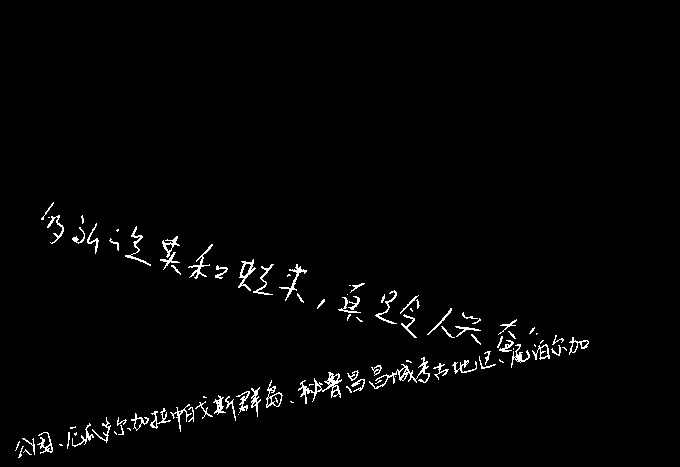 多新这英和赵来，真是令人兴奋。
公园、厄瓜多尔加拉帕戈斯群岛、秘鲁昌昌城考古地区、尼泊尔加